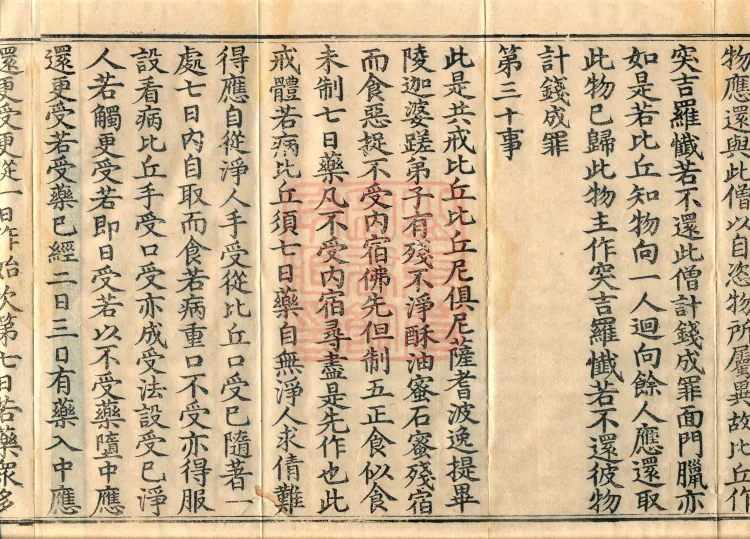 物應還與此僧以自恣物所屬異故比丘作
突吉羅懺若不還此僧計錢成罪面門臘亦
如是若比丘知物向一人迴向餘人應還取
此物已歸此物主作突吉羅懺若不還彼物
計錢成罪
第三十事
此是共戒比丘比丘尼俱尼薩耆波逸提畢
陵迦婆蹉弟子有殘不淨酥油蜜石蜜殘宿
而食惡捉不受內宿佛先但制五正食似食
未制七日藥凡不受內宿尋盡是先作也此
戒體若病比丘須七日藥自無淨人求倩難
得應自從淨人手受從比丘口受已隨著一
處七日內自取而食若病重口不受亦得服
設看病比丘手受口受亦成受法設受已淨
人若觸更受若即日受若以不受藥墮中應
還更受若受藥已經二日三日有藥入中應
還更受更從一日作始次第七日若藥眾多